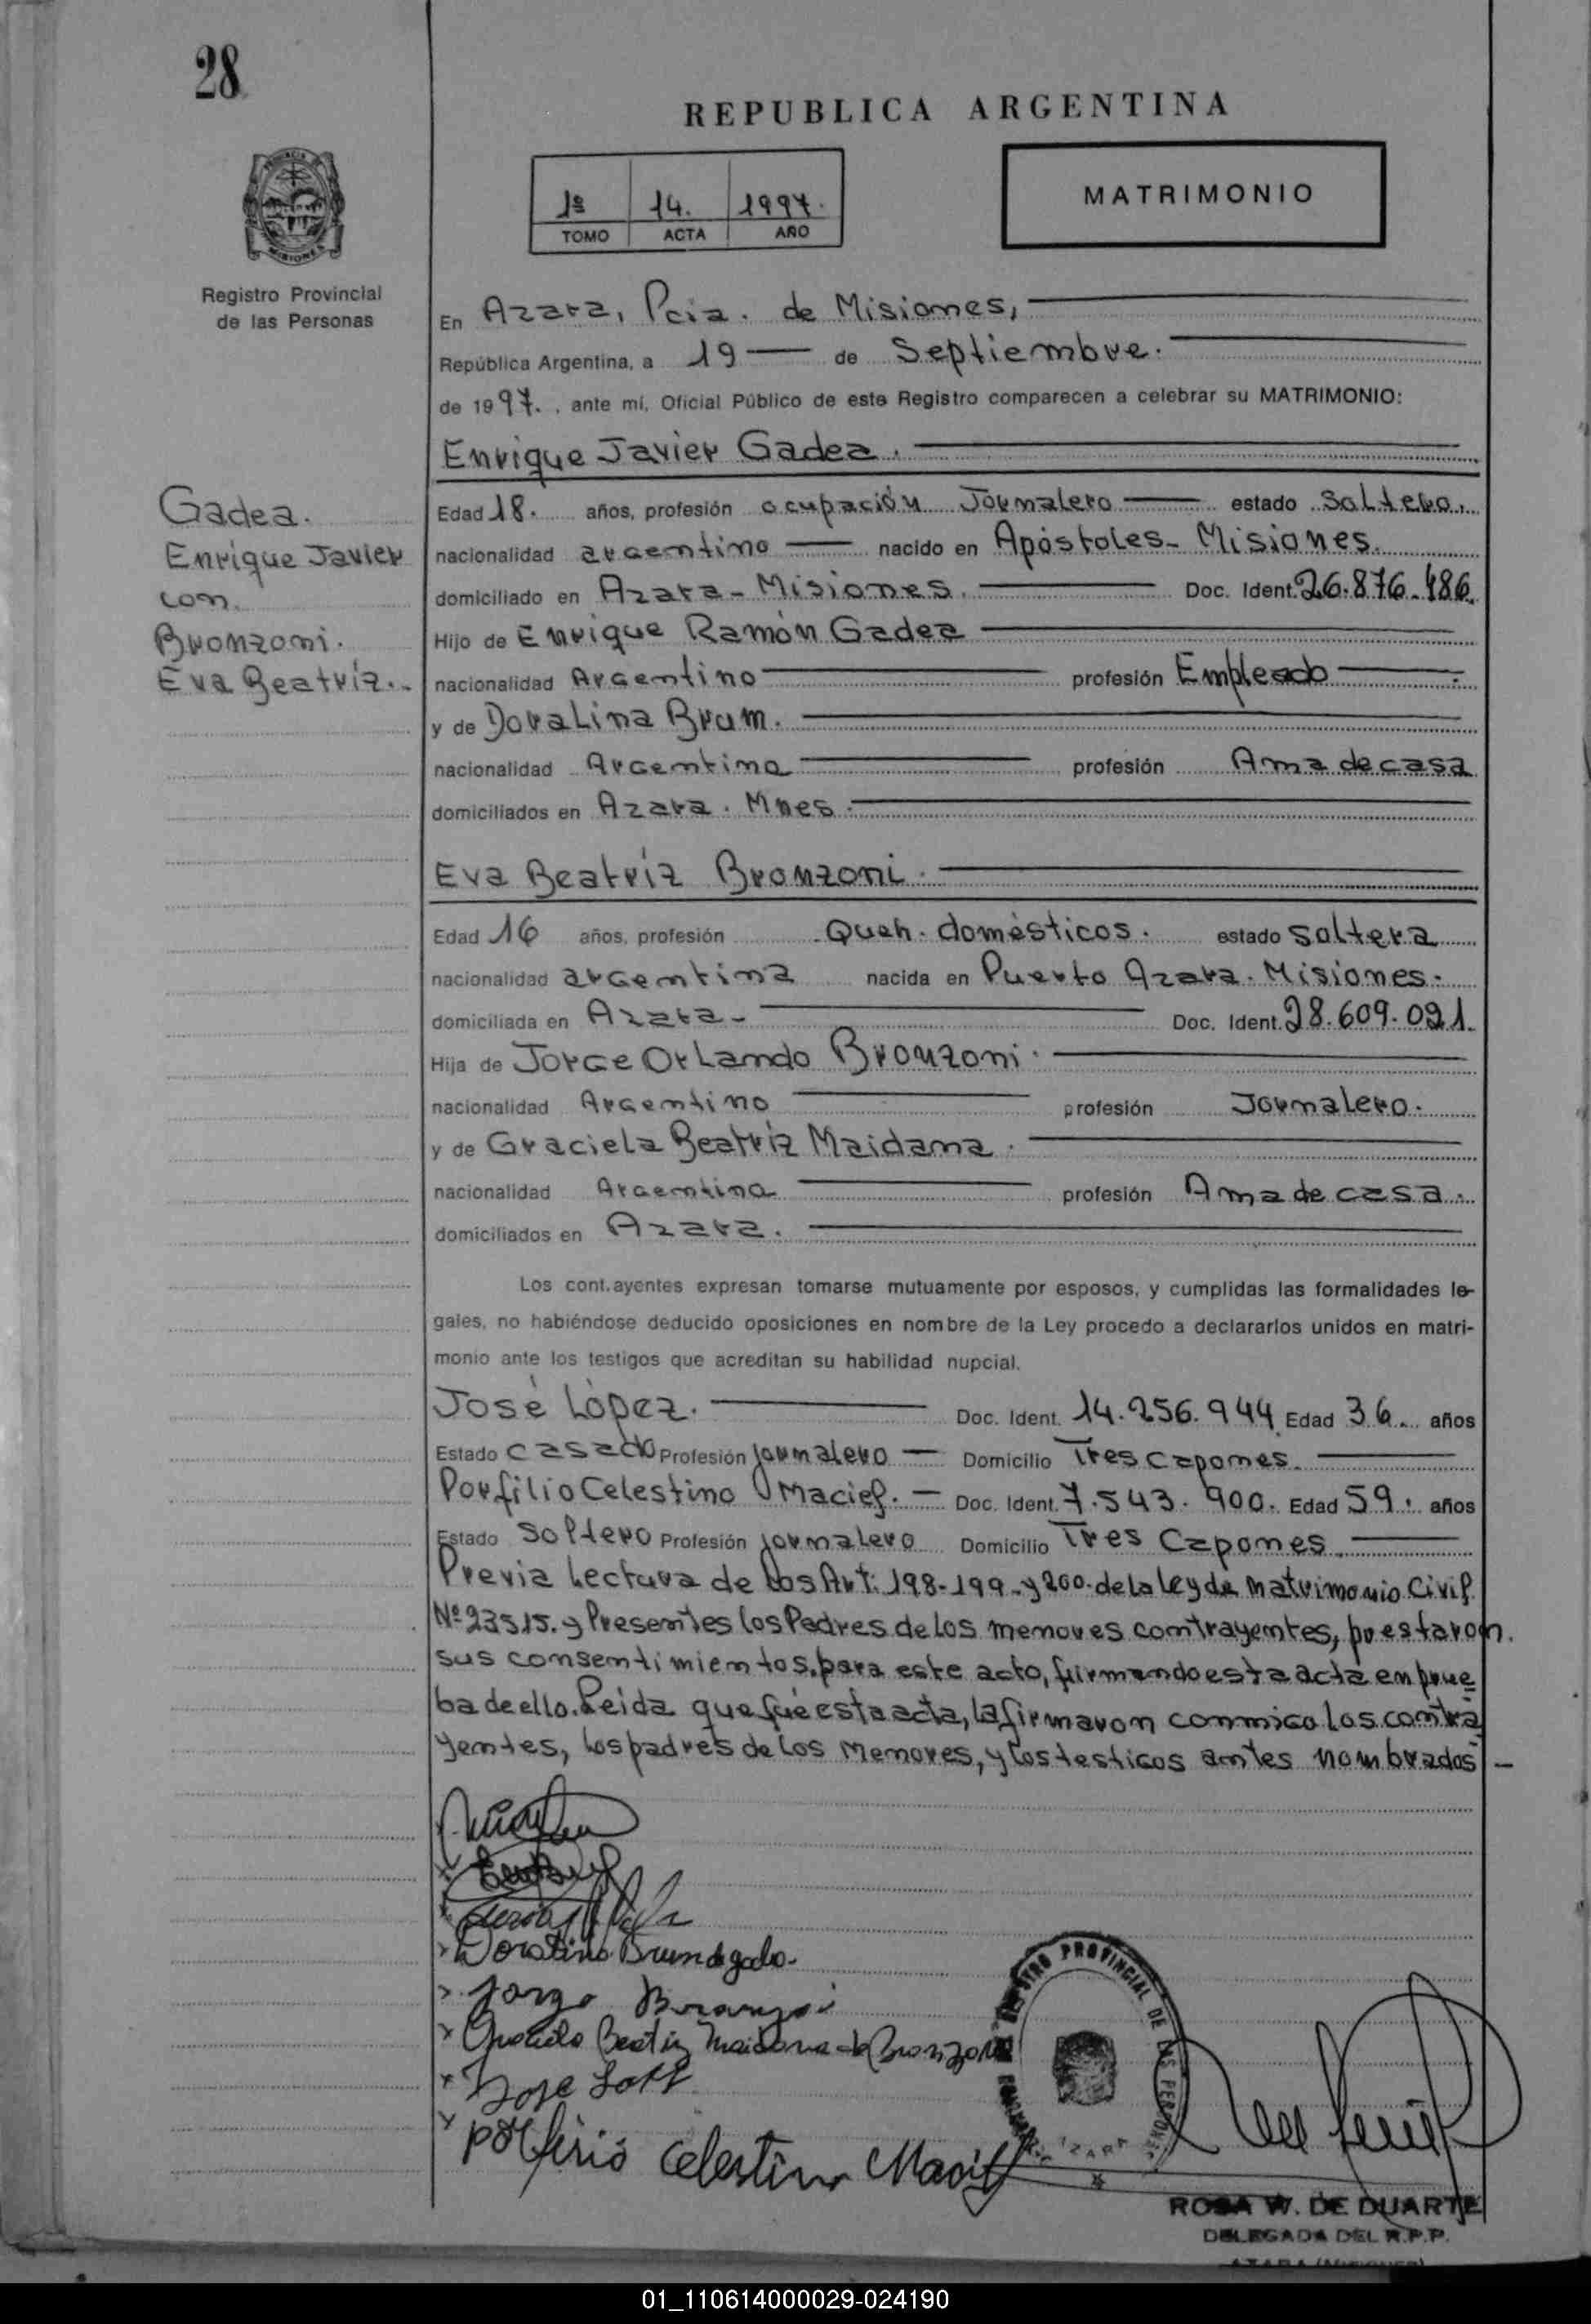 28
REPUBLICA ARGENTINA
1º 14. 1997.
TOMO ACTA AÑO
MATRIMONIO
PROVINCIA DE
MISIONES
Registro Provincial
de las Personas
En Azara, Pcia. de Misiones,
República Argentina, a 19 de Septiembre.
de 1997., ante mí, Oficial Público de este Registro comparecen a celebrar su MATRIMONIO:
Enrique Javier Gadea.
Edad 18. años, profesión ocupación Jornalero estado soltero.
nacionalidad argentino nacido en Apóstoles - Misiones.
domiciliado en Azara - Misiones. Doc. Ident. 26.876.486.
Hijo de Enrique Ramón Gadea
nacionalidad Argentino profesión Empleado
y de Doralina Brum.
nacionalidad Argentina profesión Ama de casa
domiciliados en Azara. Mnes.
Gadea.
Enrique Javier
con.
Bronzoni.
Eva Beatríz.-
Eva Beatríz Bronzoni.
Edad 16 años, profesión Queh. domésticos. estado soltera
nacionalidad argentina nacida en Puerto Azara. Misiones.
domiciliada en Azara - Doc. Ident. 28.609.021.
Hija de Jorge Orlando Bronzoni.
nacionalidad Argentino profesión Jornalero.
y de Graciela Beatríz Maidana.
nacionalidad Argentina profesión Ama de casa.
domiciliados en Azara.
Los cont.ayentes expresan tomarse mutuamente por esposos, y cumplidas las formalidades le-
gales, no habiéndose deducido oposiciones en nombre de la Ley procedo a declararlos unidos en matri-
monio ante los testigos que acreditan su habilidad nupcial.
José Lòpez. Doc. Ident. 14.256.944 Edad 36 años
Estado casado Profesión jornalero Domicilio Tres Capones.
Porfilio Celestino Maciel. - Doc. Ident. 7.543.900. Edad 59. años
Estado soltero Profesión jornalero Domicilio Tres Capones.
Previa Lectura de los Art: 198-199-y 200. de la Ley de Matrimonio Civil
Nº 23515. y Presentes los Padres de los menores contrayentes, prestaron
sus consentimientos, para este acto, firmando esta acta en prue
ba de ello. Leida que fué esta acta, la firmaron conmigo los contra
yentes, los padres de los Menores, y los testigos antes nombrados -
Doralina Brum de gadea.
Jorge Bronzoni
Graciela Beatriz Maidana de Bronzoni
Jose
porfirio Celestino Maciel
REGISTRO PROVINCIAL DE LAS PERSONAS
AZARA
ROSA W. DE DUARTE
DELEGADA DEL R.P.P.
AZARA (MISIONES)
01_110614000029-024190